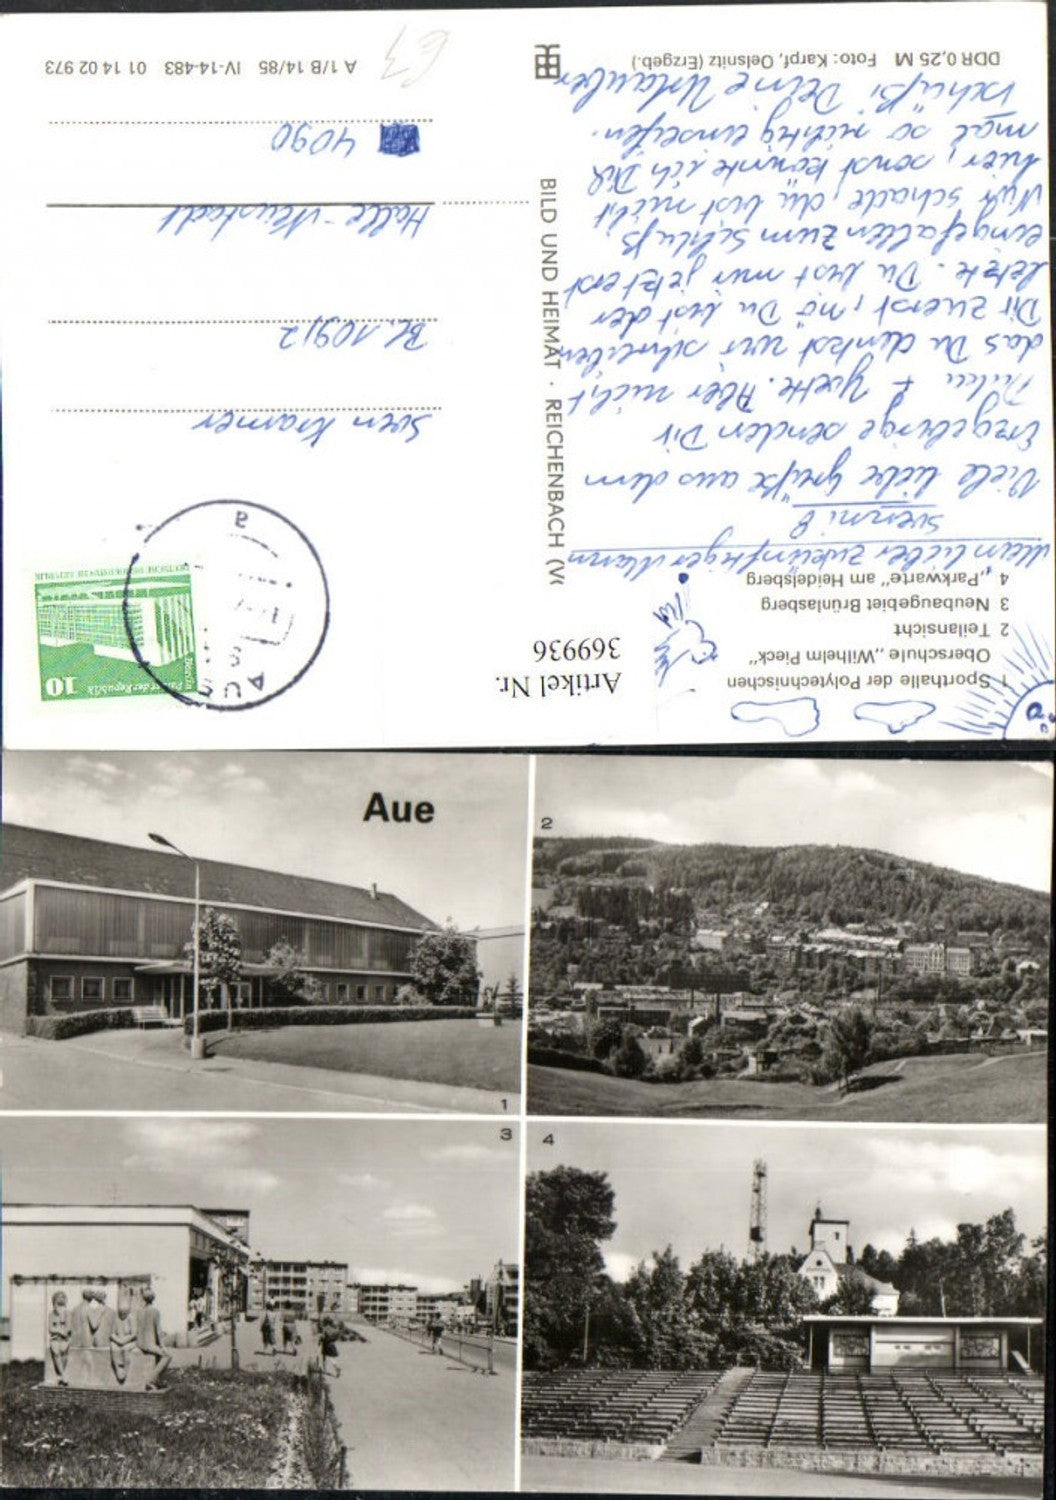 1 Sporthalle der Polytechnischen
Oberschule „Wilhelm Pieck"
2 Teilansicht
3 Neubaugebiet Brünlasberg
4 „Parkwarte" am Heidelsberg
Mein lieber zukünftiger Mann
Svenni 8
Viele liebe Grüße aus dem
Erzgebirge senden Dir
& Yvette. Aber nicht
das Du denkst wir schreiben
Dir zuerst, nö Du bist der
letzte. Du bist mir jetzt erst
eingefallen zum Schluß.
Nur schade, du bist nicht
hier, sonst könnte ich Dich
mal so richtig einseifen.
Tschüßi Deine Urlauber
DDR 0,25 M Foto: Karpf, Oelsnitz (Erzgeb.)
BILD UND HEIMAT · REICHENBACH (V
Artikel Nr.
369936
10
Palast der Republik
Berlin
DEUTSCHE DEMOKRATISCHE REPUBLIK
AUE
a
Sven Kramer
Bl. 109/2
Halle-Neustadt
4090
A 1/B 14/85 IV-14-483 01 14 02 973
Aue
1
2
3
4